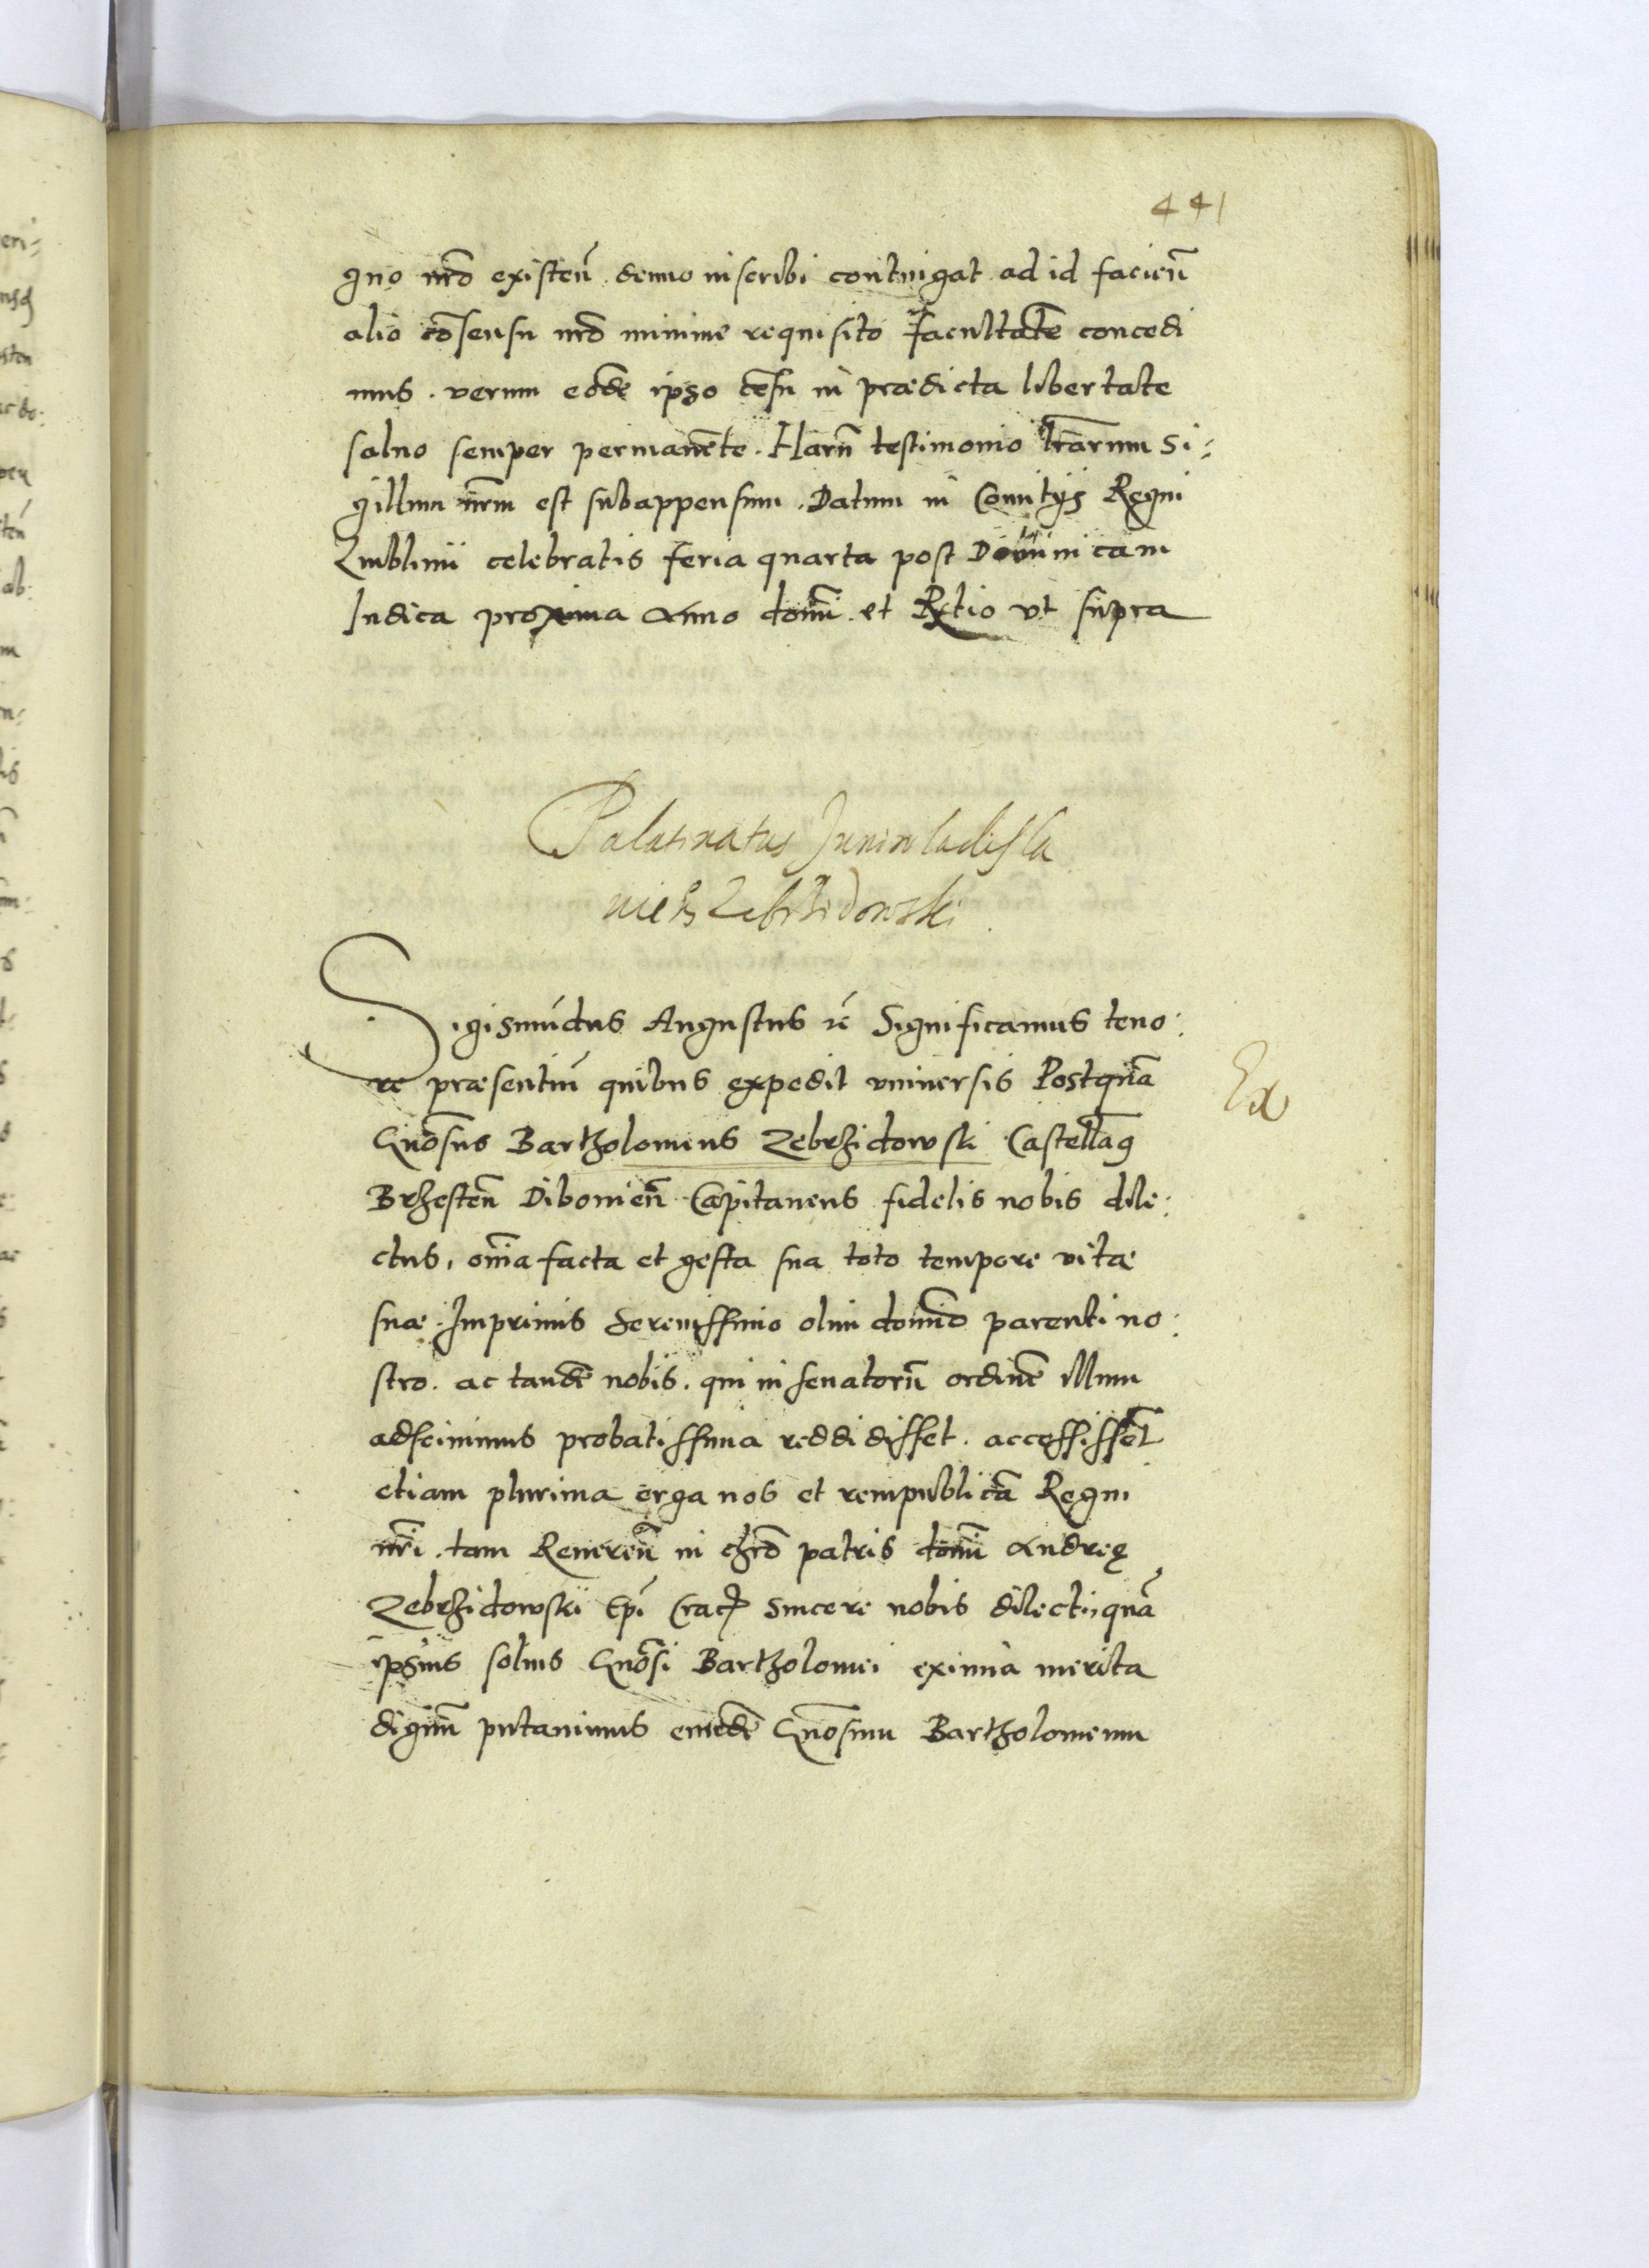 441
gno nr̃o existeñ. denuo inscribi contingat ad id facieñ
alio cõsensu nr̃o minime requisito facultatẽ concedi
mus. verum eodẽ ipso cẽsu in praedicta libertate
saluo semper permanẽte. Harũ testimonio l̃rarum Si⸗
gillum nr̃m est subappensum. Datum in Comitijs Regni
Lublinii celebratis feria quarta post Dominicam
Iudica proxima Anno domĩ. et R̃elatio vt supra
Palatinatus Juniwladisla
uien̄s Zebrzidowski
Sigismũdus Augustus rc̃ Significamus teno:
re praesentiũ quibus expedit vniuersis Postquã
Gñosus Bartholomeus Zebrzidowski Castellañ
Brzesteñ Dibouieñ Capitaneus fidelis nobis dile:
ctus, om̃ia facta et gesta sua toto tempore vitae
suae. Imprimis Serenissimo olim domĩo parenti no:
stro. ac tandẽ nobis. qui in senatorũ ordinẽ illum
adsciuimus probatissima reddidisset. accessissẽt
etiam plurima erga nos et rempublicã Regni
nr̃i. tam Reuereñ in chr̃o patris domĩ Andreę
Zebrzidowski Ep̃i Crac̃ sincere nobis dilecti, quã
ipsius solius Gñosi Bartholomei eximia merita
dignũ putauimus eundẽ Gñosum Bartholomeum
Ex